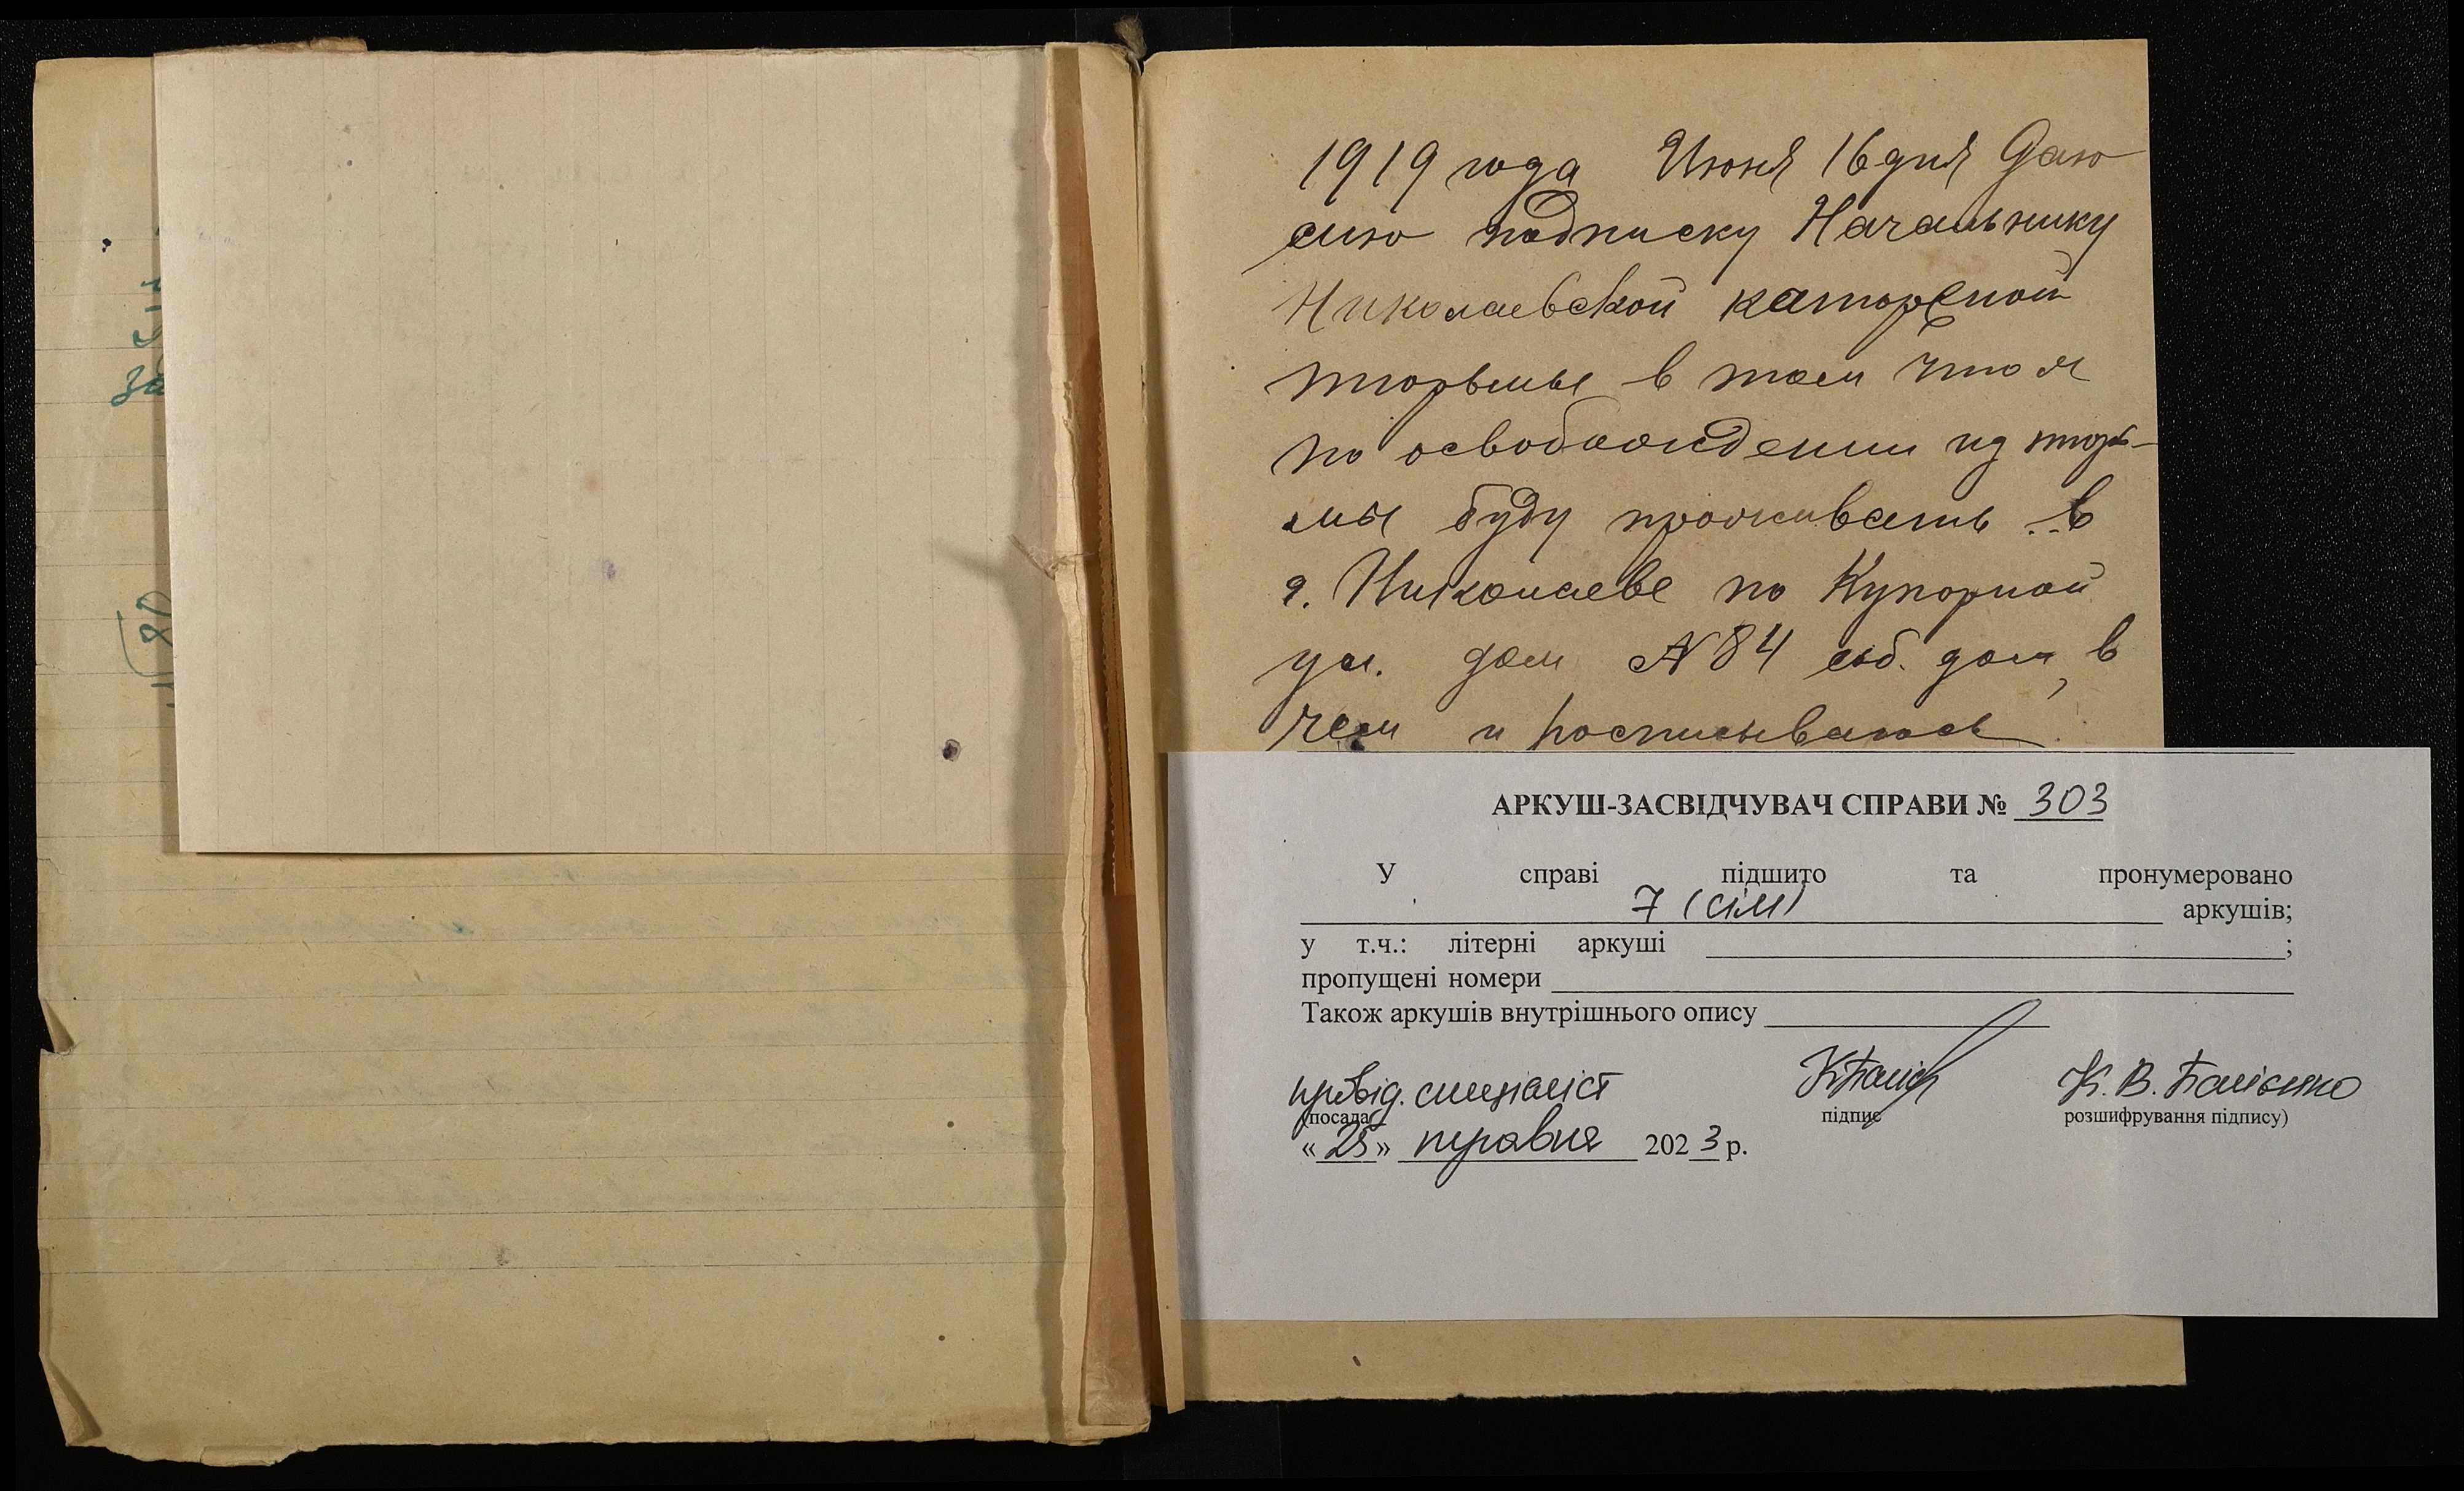 80
1919 года Июня 16 дня Даю
сию подписку Начальнику
Николаевской каторжной
тюрьмы в том что я
по освобождении из тюрь-
мы буду проживать в
г. Николаеве по Купорной
ул. дом № 84 соб. дом, в
чем и росписываюсь
АРКУШ-ЗАСВІДЧУВАЧ СПРАВИ № 303
У справі підшито та пронумеровано
7 (сім) аркушів;
у т.ч.: літерні аркуші ;
пропущені номери
Також аркушів внутрішнього опису
провід. спеціаліст К. В.
(посада підпис розшифрування підпису)
«25» травня 2023 р.